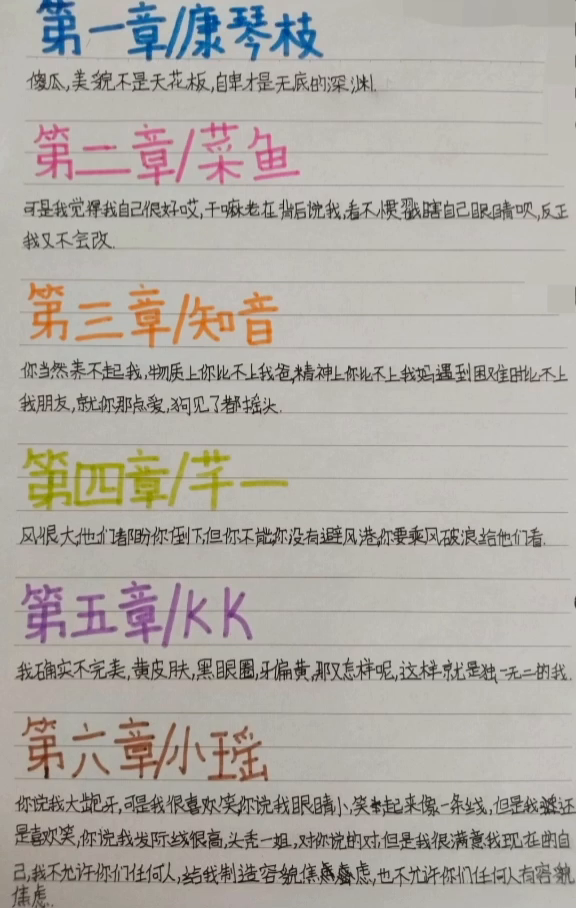 第一章/康琴枝
傻瓜,美貌不是天花板,自卑才是无底的深渊.
第二章/菜鱼
可是我觉得我自己很好哎,干嘛老在背后说我,看不惯戳瞎自己眼睛呗,反正
我又不会改.
第三章/知音
你当然养不起我,物质上你比不上我爸,精神上你比不上我妈,遇到困难时比不上
我朋友,就你那点爱,狗见了都摇头.
第四章/芊一
风很大,他们都盼你倒下,但你不能,你没有避风港,你要乘风破浪给他们看.
第五章/KK
我确实不完美,黄皮肤,黑眼圈,牙偏黄,那又怎样呢,这样就是独一无二的我.
第六章/小瑶
你说我大龅牙,可是我很喜欢笑,你说我眼睛小,笑起来像一条线,但是我还
是喜欢笑,你说我发际线很高,头秃一姐,对你说的对,但是我很满意我现在的自
己,我不允许你们任何人,给我制造容貌焦虑,也不允许你们任何人有容貌
焦虑.